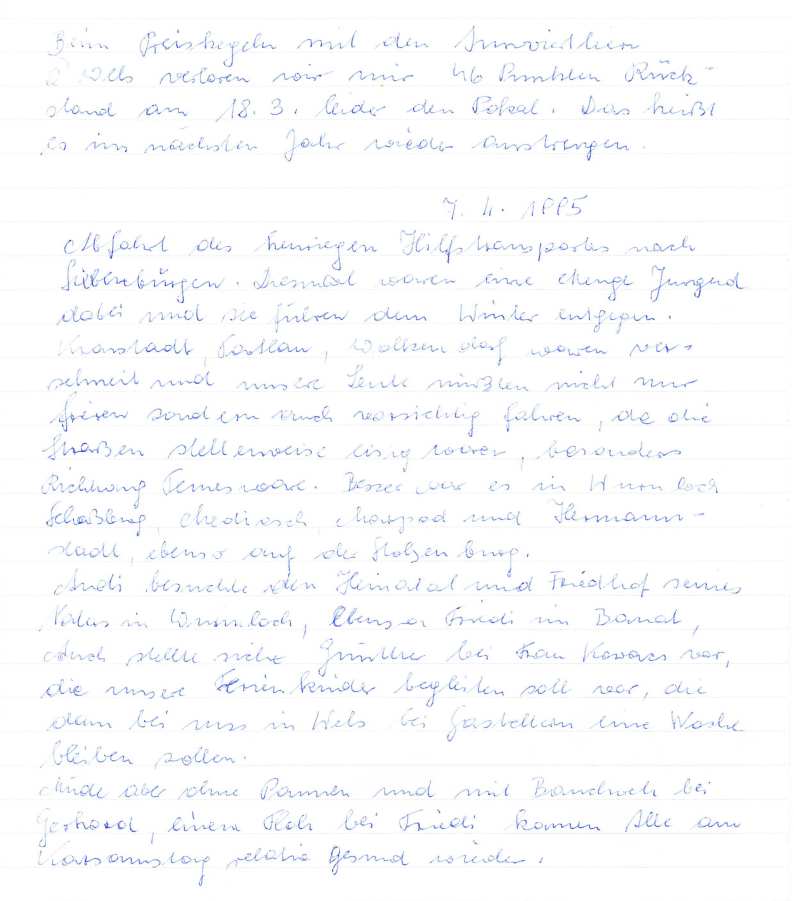 Beim Preiskegeln mit den Innviertlern
Wels verloren wir mir 46 Punkten Rück-
stand am 18. 3. leider den Pokal. Das heißt
es im nächsten Jahr wieder anstrengen.
7. 4. 1995
Abfahrt des heurigen Hilfstransportes nach
Siebenbürgen. Diesmal waren eine Menge Jungend
dabei und sie führen dem Winter entgegen.
Kronstadt, Tartlau, Wolkendorf waren ver-
schneit und unsere Leute mußten nicht nur
frieren sondern auch vorsichtig fahren, da die
Straßen stellenweise eisig waren, besonders
Richtung Temesvare. Besser war es in Wurmloch
Schäßburg, Mediasch, Marpod und Hermann-
stadt, ebenso auf der Stolzenburg.
Andi besuchte den Heimatort und Friedhof seines
Vaters in Wurmloch, Ebenso Friedi im Banat,
Auch stellte sich Günther bei Frau Kovacs vor,
die unsere Ferienkinder begleiten soll vor, die
dann bei uns in Wels bei Gasteltern eine Woche
bleiben sollen.
Müde aber ohne Pannen und mit Bauchweh bei
Gerhard, einem Floh bei Friedi kamen Alle am
Karsamstag relativ gesund wieder.